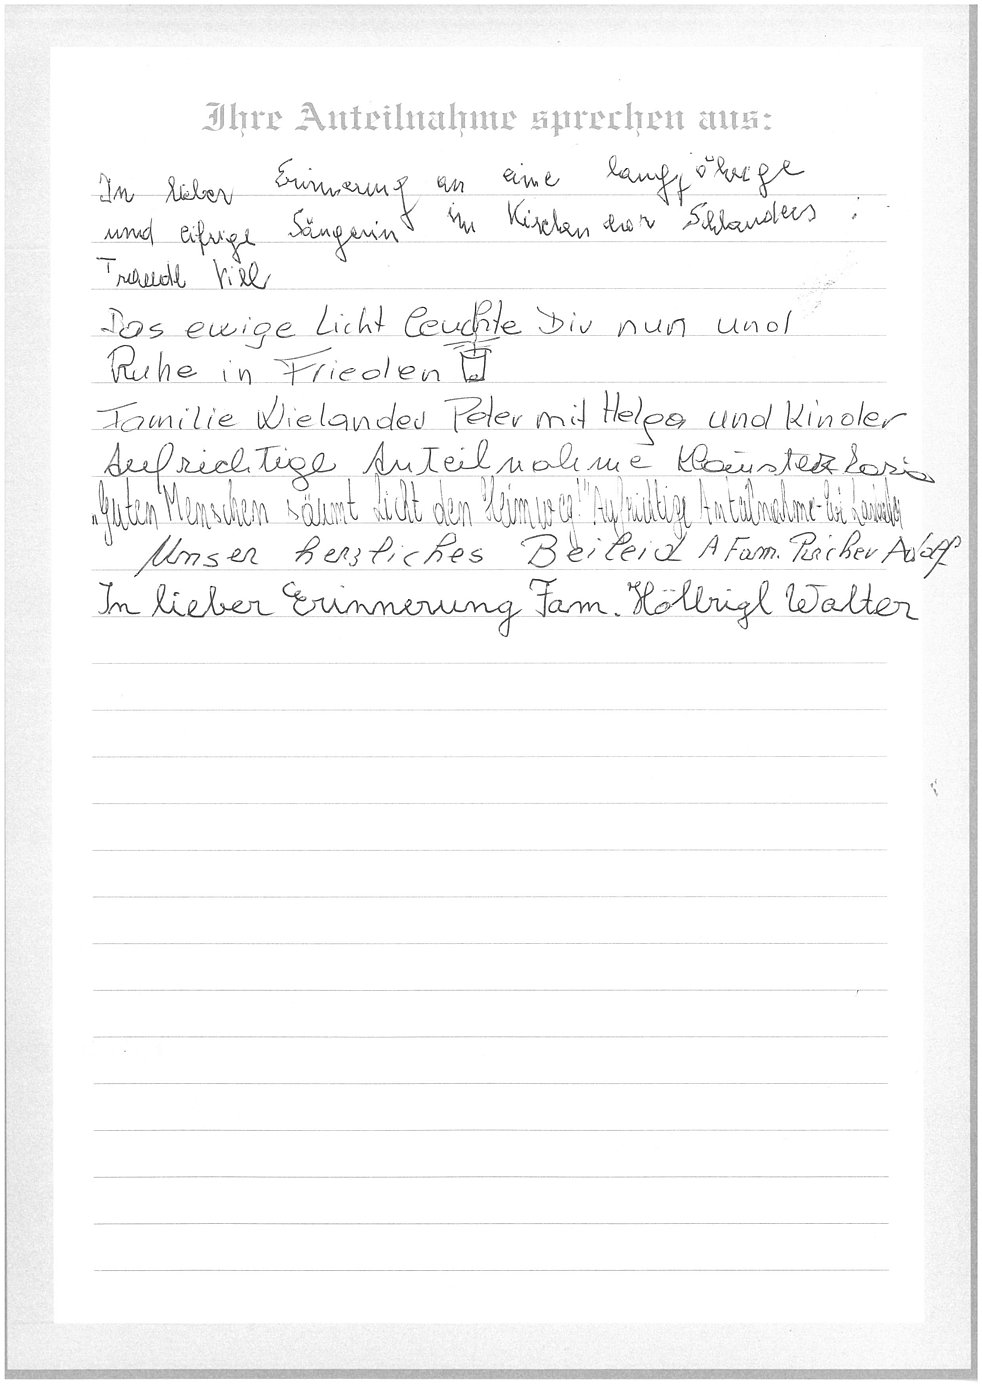 Ihre Anteilnahme sprechen aus:
In lieber Erinnerung an eine langjährige
und eifrige Sängerin im Kirchenchor Schlanders :
Traudl Vill
Das ewige Licht leuchte Dir nun und
Ruhe in Frieden
Familie Wielander Peter mit Helga und Kinder
Aufrichtige Anteilnahme
"Guten Menschen säumt Licht den Heimweg!" Aufrichtige Anteilnahme -
Unser herzliches Beileid Fam. Pircher Adolf
In lieber Erinnerung Fam. Höllrigl Walter